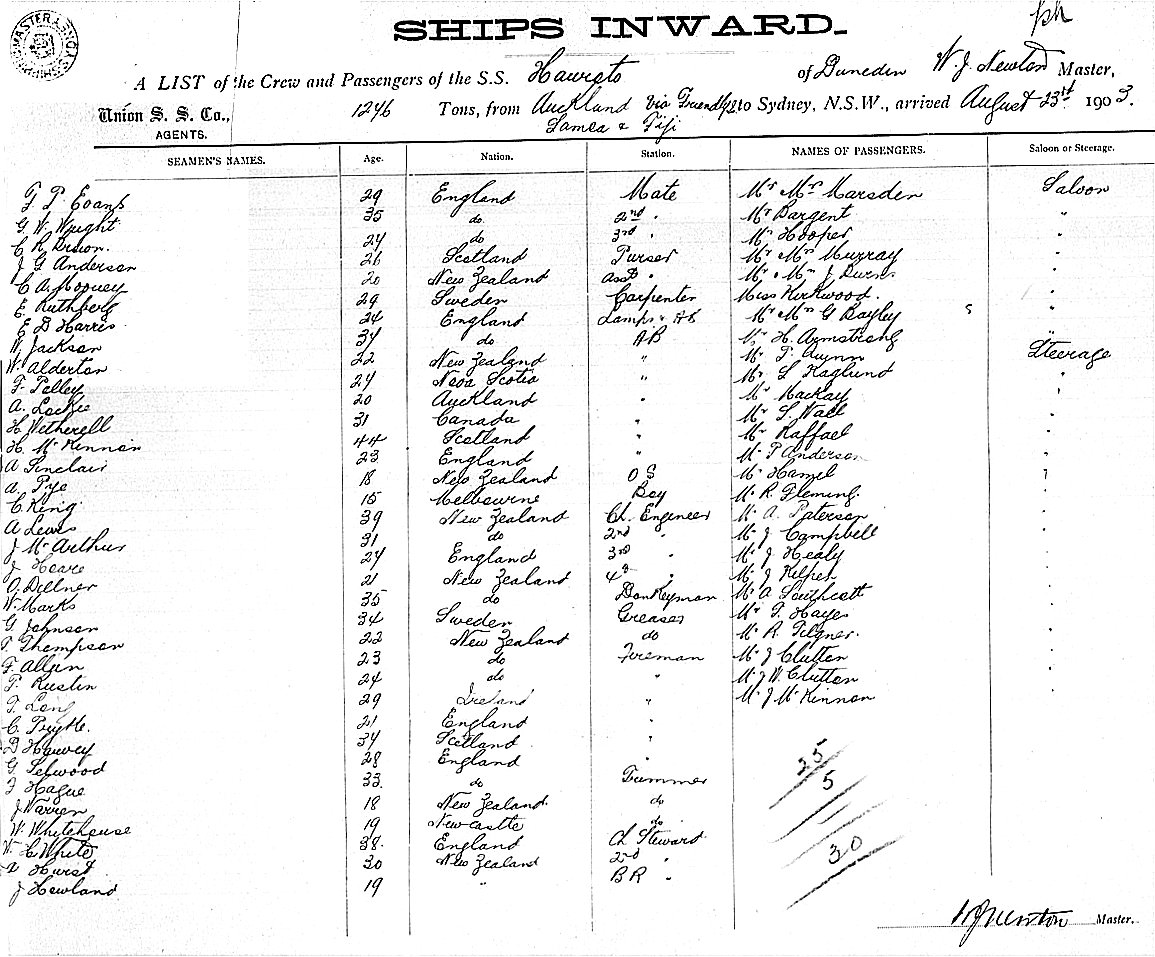 SHIPS INWARD.
A LIST of the Crew and Passengers of the S.S. Hauroto of Dunedin W. J. Newton Master,
Union S. S. Co., AGENTS. 1246 Tons, from Auckland via Friendly to Sydney, N.S.W., arrived August 23rd 1903.
Samoa & Fiji
SEAMEN'S NAMES. Age. Nation. Station. NAMES OF PASSENGERS. Saloon or Steerage.
F P Evans 29 England Mate Mr Mrs Marsden Saloon
G. W. Wright 35 do 2nd " Mr Bargent "
C R Dixon. 24 do 3rd " Mr Hooper "
J G Anderson 26 Scotland Purser Mr Mrs Murray "
C A Mooney 20 New Zealand asst " Mr Mrs J Durns "
E. Ruthberg 29 Sweden Carpenter Miss Kirkwood. "
E D Harris 24 England Lamps & AB Mr Mrs G Bayley s "
W. Jackson 34 do AB Mr H. Armstrong "
W. Alderton 22 New Zealand " Mr T Gwynn Steerage
F. Pelley 24 Nova Scotia " Mr L Haglund "
A. Lockie 20 Auckland " Mr Mackay "
H. Wetherell 31 Canada " Mr S. Wall "
H. McKinnon 44 Scotland " Mr Raffael "
A Sinclair 23 England " Mr P Anderson "
A. Pye 18 New Zealand O S Mr Hamel "
C King 15 Melbourne Boy Mr R. Fleming. "
A Lewis 39 New Zealand Ch. Engineer Mr A. Paterson "
J McArthur 31 do 2nd " Mr J Campbell "
J Heare 24 England 3rd " Mr J Healy "
O. Dellner 21 New Zealand 4th " Mr J Kilpet "
W. Marks 35 do Donkeyman Mr A Southcott "
G. Johnson 34 Sweden Greaser Mr F. Hayes "
T. Thompson 22 New Zealand do Mr R. Pilgner. "
F. Allan 23 do Fireman Mr J Clutton "
T. Rustin 24 do " Mr J W. Clutton "
T. Long 29 Ireland " Mr J McKinnon "
C. Pryke. 21 England "
D Harvey 34 Scotland "
G Selwood 28 England "
F Hague 33. do Trimmer
J Warren 18 New Zealand. do
W. Whitehouse 19 Newcastle do
W C White 38. England Ch Steward
Hurst 30 New Zealand 2nd "
J Howland 19 " B R "
25
5
30
W J Newton Master.